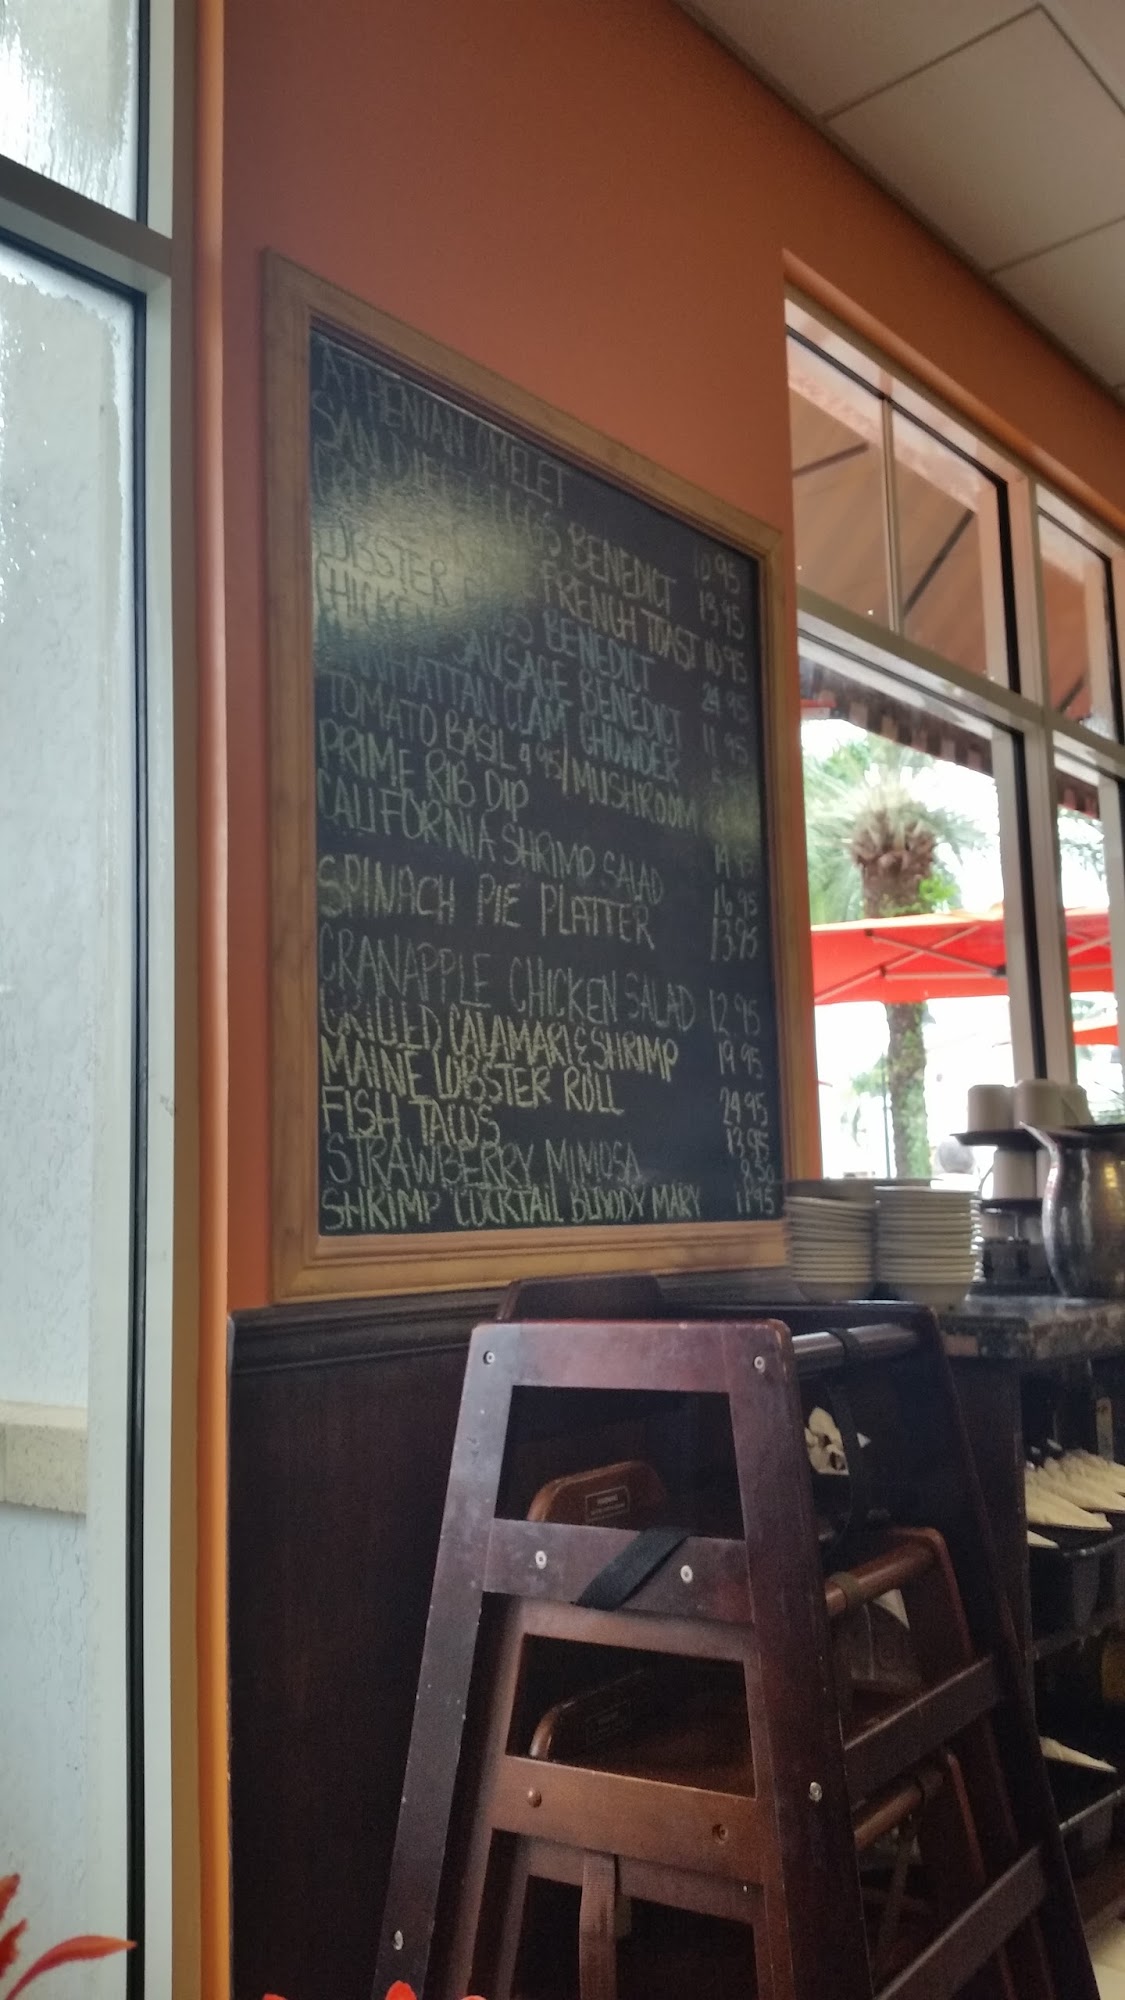 ATHENIAN OMELET 10.95
SAN DIEGO EGGS BENEDICT 13.95
FRENCH TOAST 10.95
LOBSTER BENEDICT 24.95
CHICKEN SAUSAGE BENEDICT 11.95
MANHATTAN CLAM CHOWDER
TOMATO BASIL 9.95/MUSHROOM
PRIME RIB DIP 14.95
CALIFORNIA SHRIMP SALAD 16.95
SPINACH PIE PLATTER 13.95
CRANAPPLE CHICKEN SALAD 12.95
GRILLED CALAMARI & SHRIMP 19.95
MAINE LOBSTER ROLL 24.95
FISH TACOS 13.95
STRAWBERRY MIMOSA 8.50
SHRIMP COCKTAIL BLOODY MARY 11.95